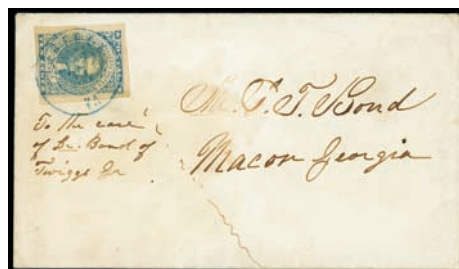 To the care
of Dr. Bond of
Twiggs Ga
Mr. P. T. Bond
Macon Georgia